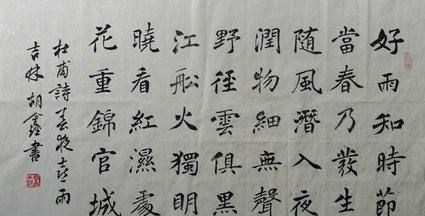 好雨知時節
當春乃發生
随風潛入夜
潤物細無聲
野徑雲俱黑
江船火獨明
曉看紅濕處
花重錦官城
杜甫詩春夜喜雨
吉林胡鑫書